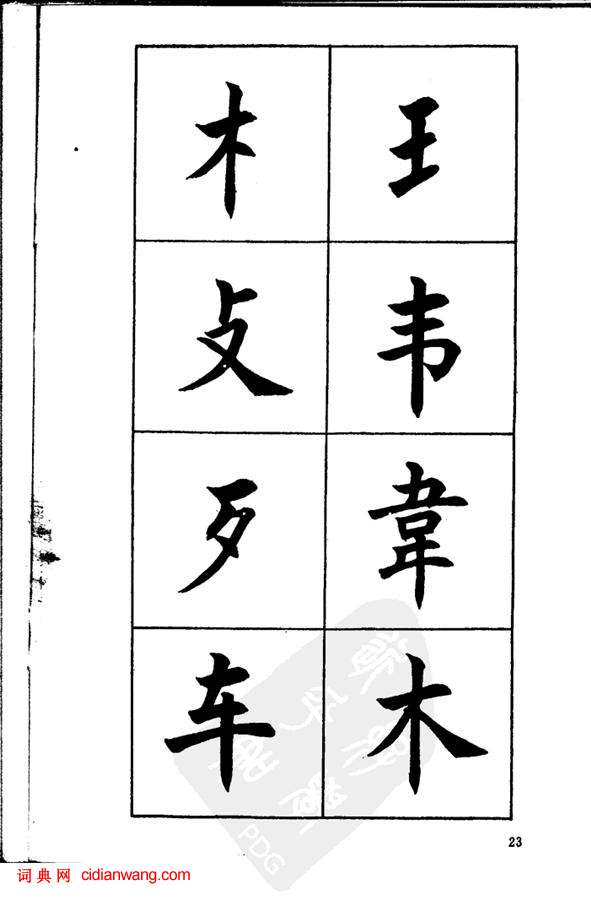 王
韦
韋
木
木
攴
歹
车
23
词典网 cidianwang.com